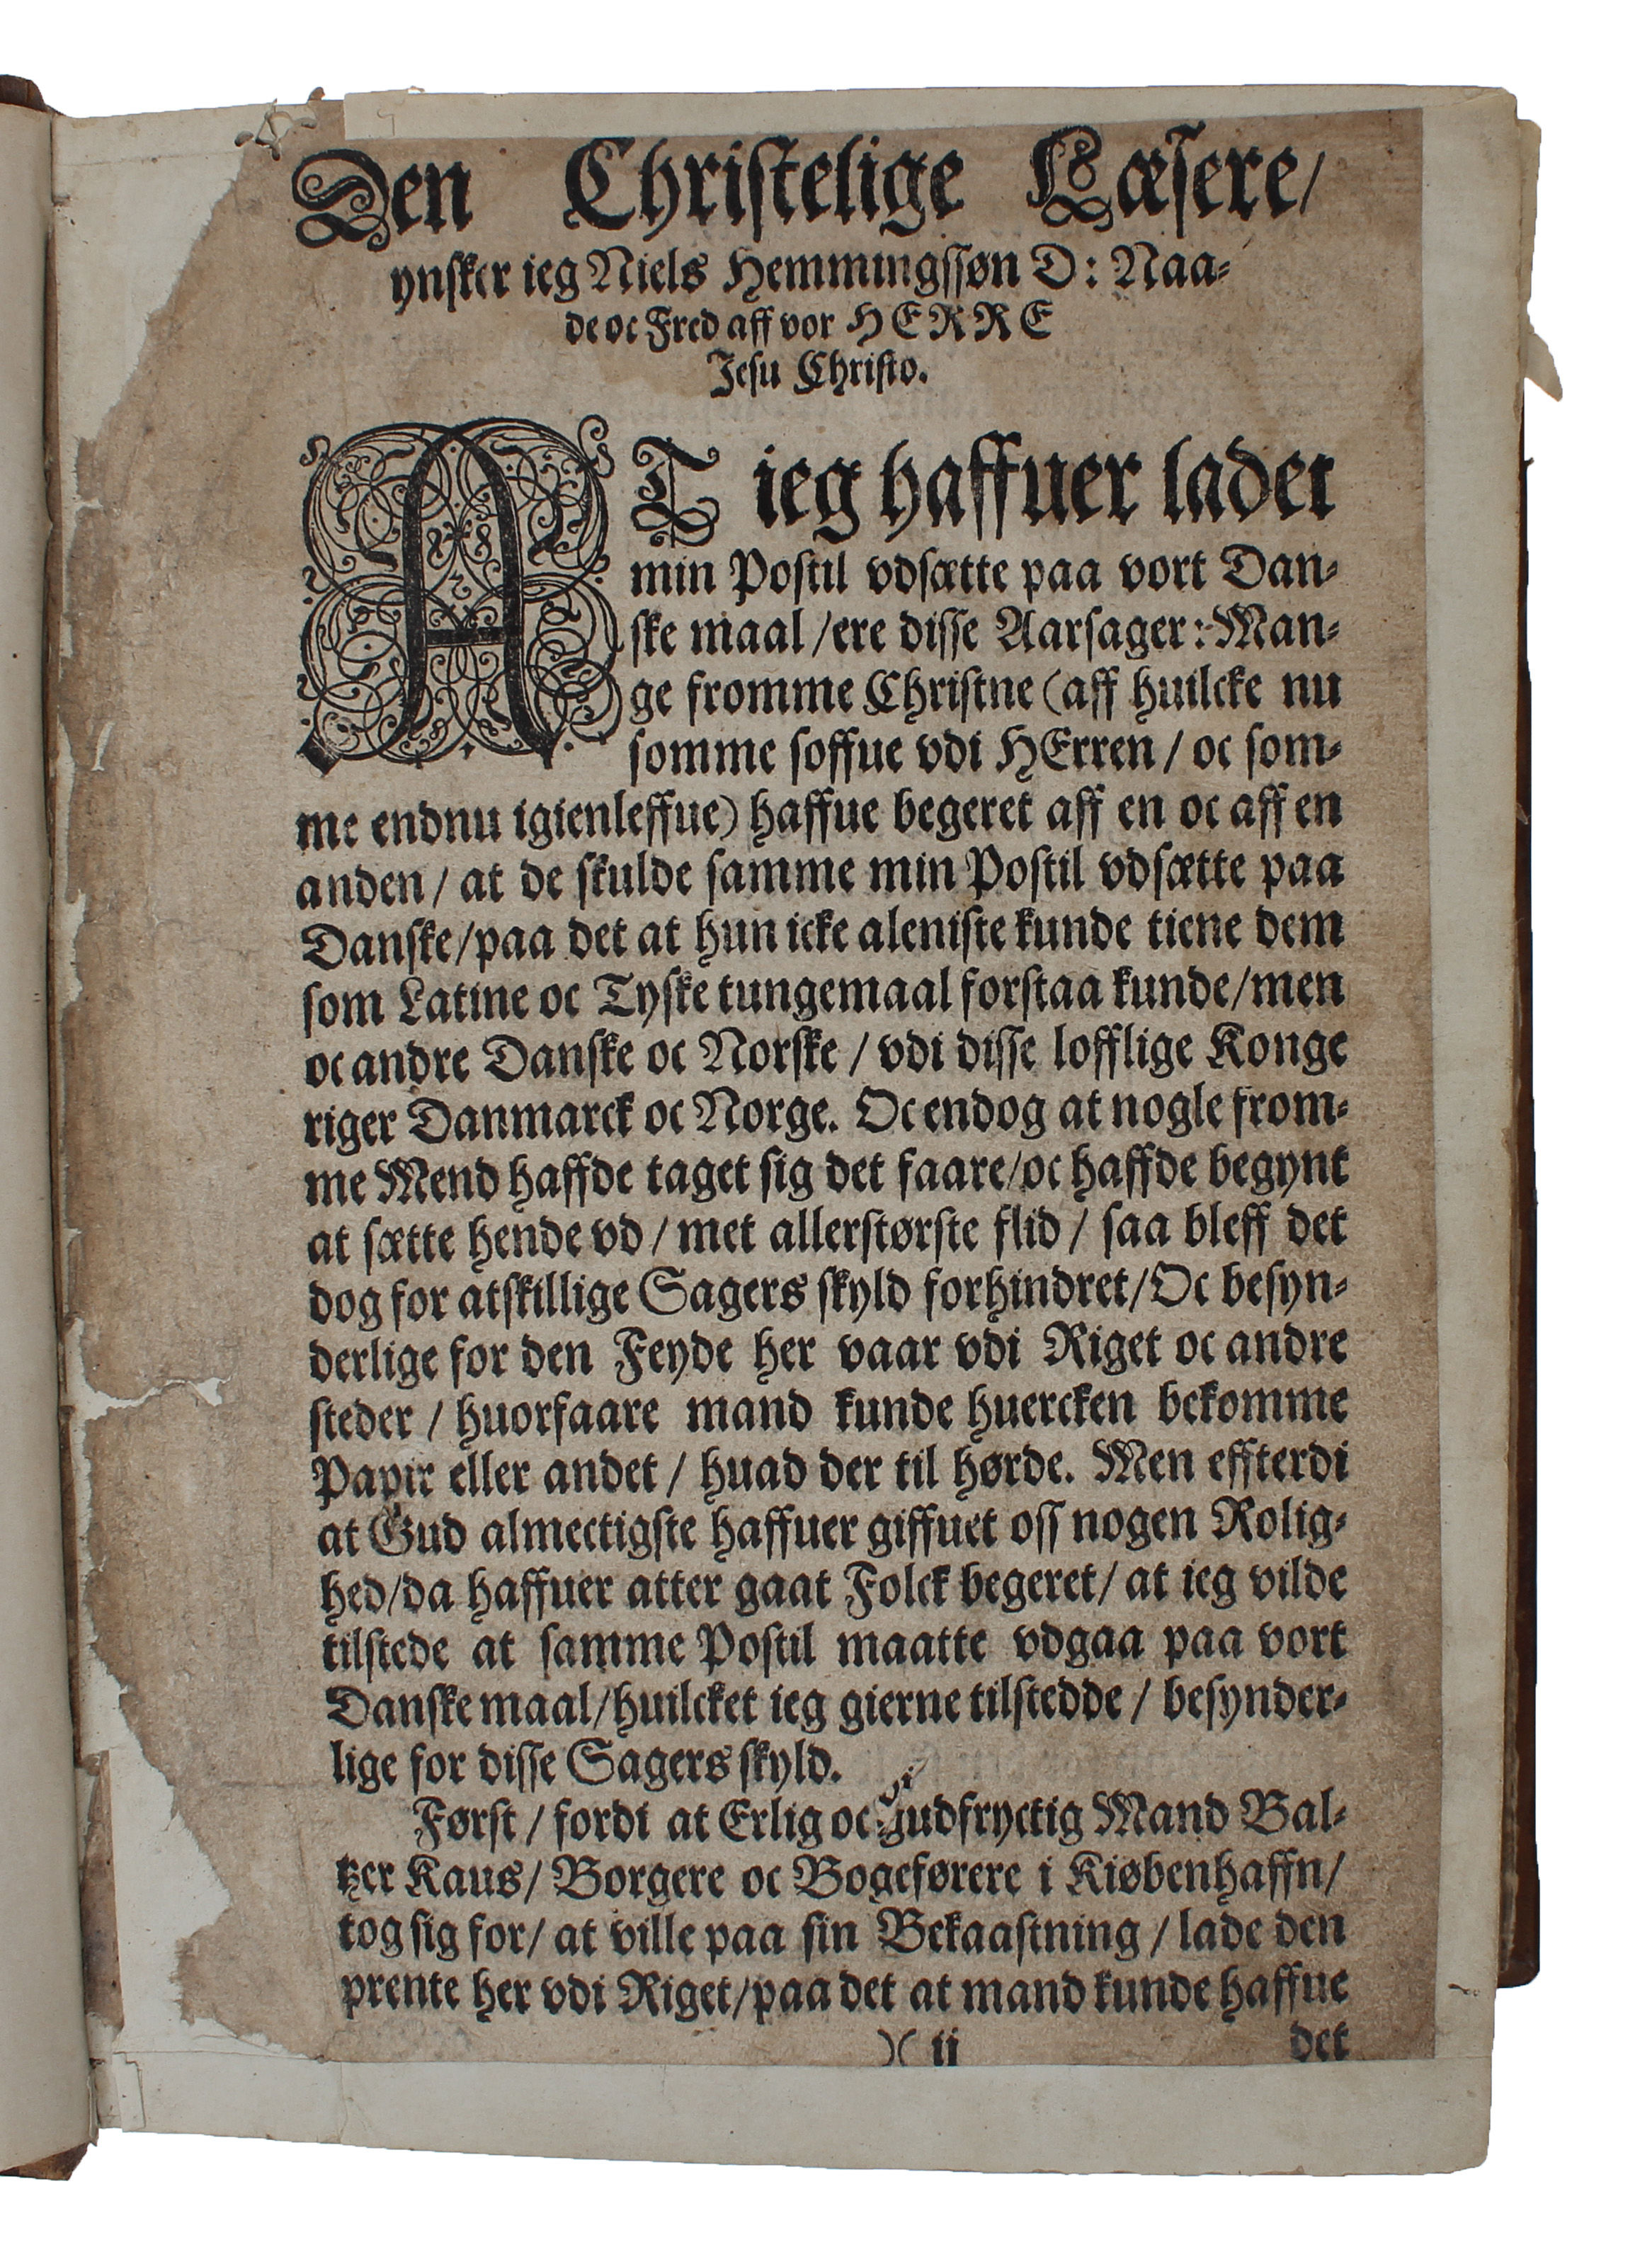 Den Christelige Læsere/
ynsker ieg Niels Hemmingssøn D: Naa-
de oc Fred aff vor HERRE
Jesu Christo.
AT ieg haffuer ladet
min Postil vdsætte paa vort Dan-
ske maal/ere disse Aarsager: Man-
ge fromme Christne (aff huilcke nu
somme soffue vdi HErren/oc som-
me endnu igienleffue) haffue begeret aff en oc aff en
anden/at de skulde samme min Postil vdsætte paa
Danske/paa det at hun icke aleniste kunde tiene dem
som Latine oc Tyske tungemaal forstaa kunde/men
oc andre Danske oc Norske/vdi disse lofflige Konge
riger Danmarck oc Norge. Oc endog at nogle from-
me Mend haffde taget sig det faare/oc haffde begynt
at sætte hende vd/met allerstørste flid/saa bleff det
dog for atskillige Sagers skyld forhindret/Oc besyn-
derlige for den Feyde her vaar vdi Riget oc andre
steder/huorfaare mand kunde huercken bekomme
Papir eller andet/huad der til hørde. Men effterdi
at Gud almectigste haffuer giffuet oss nogen Rolig-
hed/da haffuer atter gaat Folck begeret/at ieg vilde
tilstede at samme Postil maatte vdgaa paa vort
Danske maal/huilcket ieg gierne tilstedde/besynder-
lige for disse Sagers skyld.
Først/fordi at Erlig oc gudfryctig Mand Bal-
tzer Kaus/Borgere oc Bogeførere i Kiøbenhaffn/
tog sig for/at ville paa sin Bekaastning/lade den
prente her vdi Riget/paa det at mand kunde haffue
)( ij det